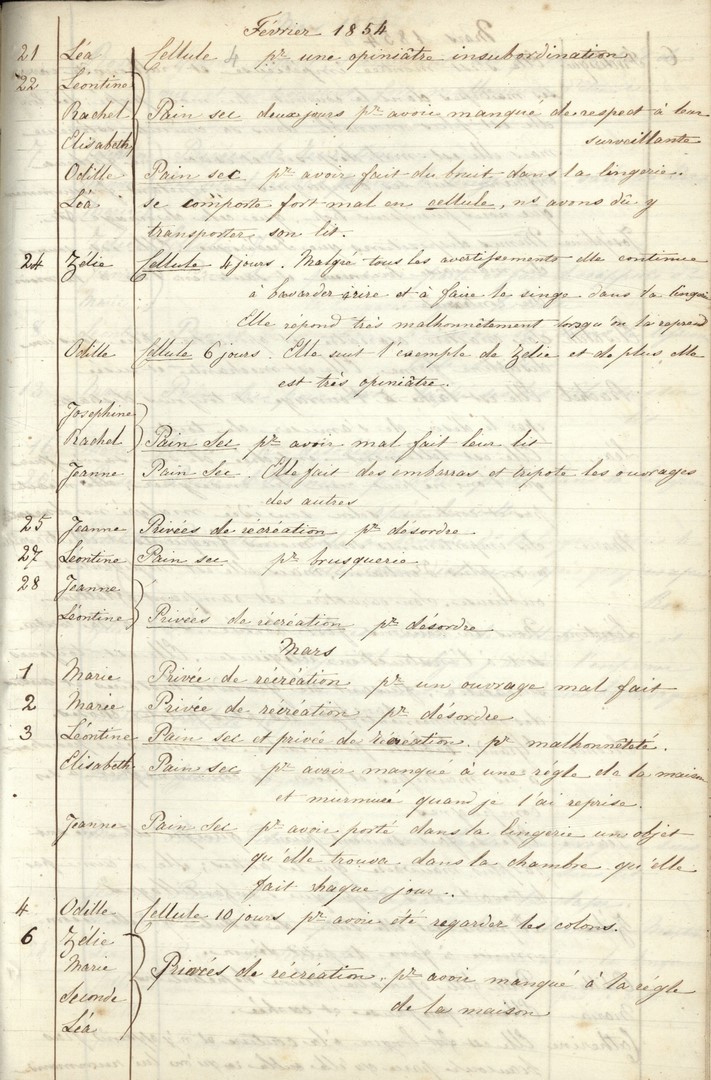 Février 1854
21 Léa Cellule pr une opiniâtre insubordination
22 Léontine
Rachel Pain sec deux jours pr avoir manqué de respect à leur
Elisabeth surveillante
Odille Pain sec pr avoir fait du bruit dans la lingerie.
Léa se comporte fort mal en cellule, ns avons dû y
transporter son lit.
24 Zélie Cellule 4 jours. Malgré tous les avertissements elle continue
à bavarder rire et à faire le singe dans la lingerie
Elle répond très malhonnêtement lorsqu'on la reprend
Odille Cellule 6 jours. Elle suit l'exemple de Zélie et de plus elle
est très opiniâtre.
Joséphine
Rachel Pain Sec pr avoir mal fait leur lit
Jeanne Pain Sec. Elle fait des embarras et les ouvrages
des autres
25 Jeanne Privées de récréation pr désordre
27 Léontine Pain sec pr brusquerie
28 Jeanne
Léontine Privées de récréation pr désordre
Mars
1 Marie Privée de récréation pr un ouvrage mal fait
2 Marie Privée de récréation pr désordre
3 Léontine Pain sec et privée de récréation. pr malhonnêteté.
Elisabeth Pain sec pr avoir manqué à une régle de la maison
et murmuré quand je l'ai reprise.
Jeanne Pain Sec pr avoir porté dans la lingerie un objet
qu'elle trouva dans la chambre qu'elle
fait chaque jour.
4 Odille Cellule 10 jours pr avoir été regarder les colons.
6 Zélie
Marie Privées de récréation. pr avoir manqué à la régle
Seconde de la maison
Léa